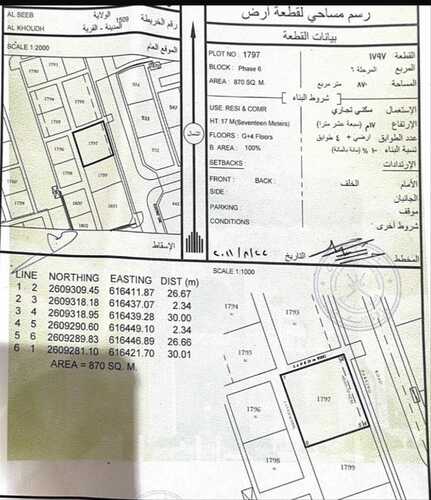 AL SEEB
الولاية
1509
رقم الخريطة
AL KHOUDH
المدينة - القرية
SCALE 1:2000
الموقع العام
1797
الإسقاط
الشمال
رسم مساحي لقطعة أرض
بيانات القطعة
PLOT NO : 1797
١٧٩٧
القطعة
BLOCK : Phase 6
المرحلة ٦
المربع
AREA : 870 SQ. M.
٨٧٠ متر مربع
المساحة
شروط البناء
USE RESI & COMR
سكني تجاري
الإستعمال
HT: 17 M(Seventeen Meters)
١٧م (سبعة عشر مترا)
الإرتفاع
FLOORS : G+4 Floors
ارضي + ٤ طوابق
عدد الطوابق
B. AREA : 100%
نسبة البناء
SETBACKS :
الإرتدادات
FRONT : BACK :
الخلف
الأمام
SIDE :
الجانبان
PARKING :
موقف
CONDITIONS :
شروط أخرى
التاريخ
المخطط
LINE NORTHING EASTING DIST (m)
1 2 2609309.45 616411.87 26.67
2 3 2609318.18 616437.07 2.34
3 4 2609318.95 616439.28 30.00
4 5 2609290.60 616449.10 2.34
5 6 2609289.83 616446.89 26.66
6 1 2609281.10 616421.70 30.01
AREA = 870 SQ. M.
SCALE 1:1000
1794
1795
1796
1797
1798
1799